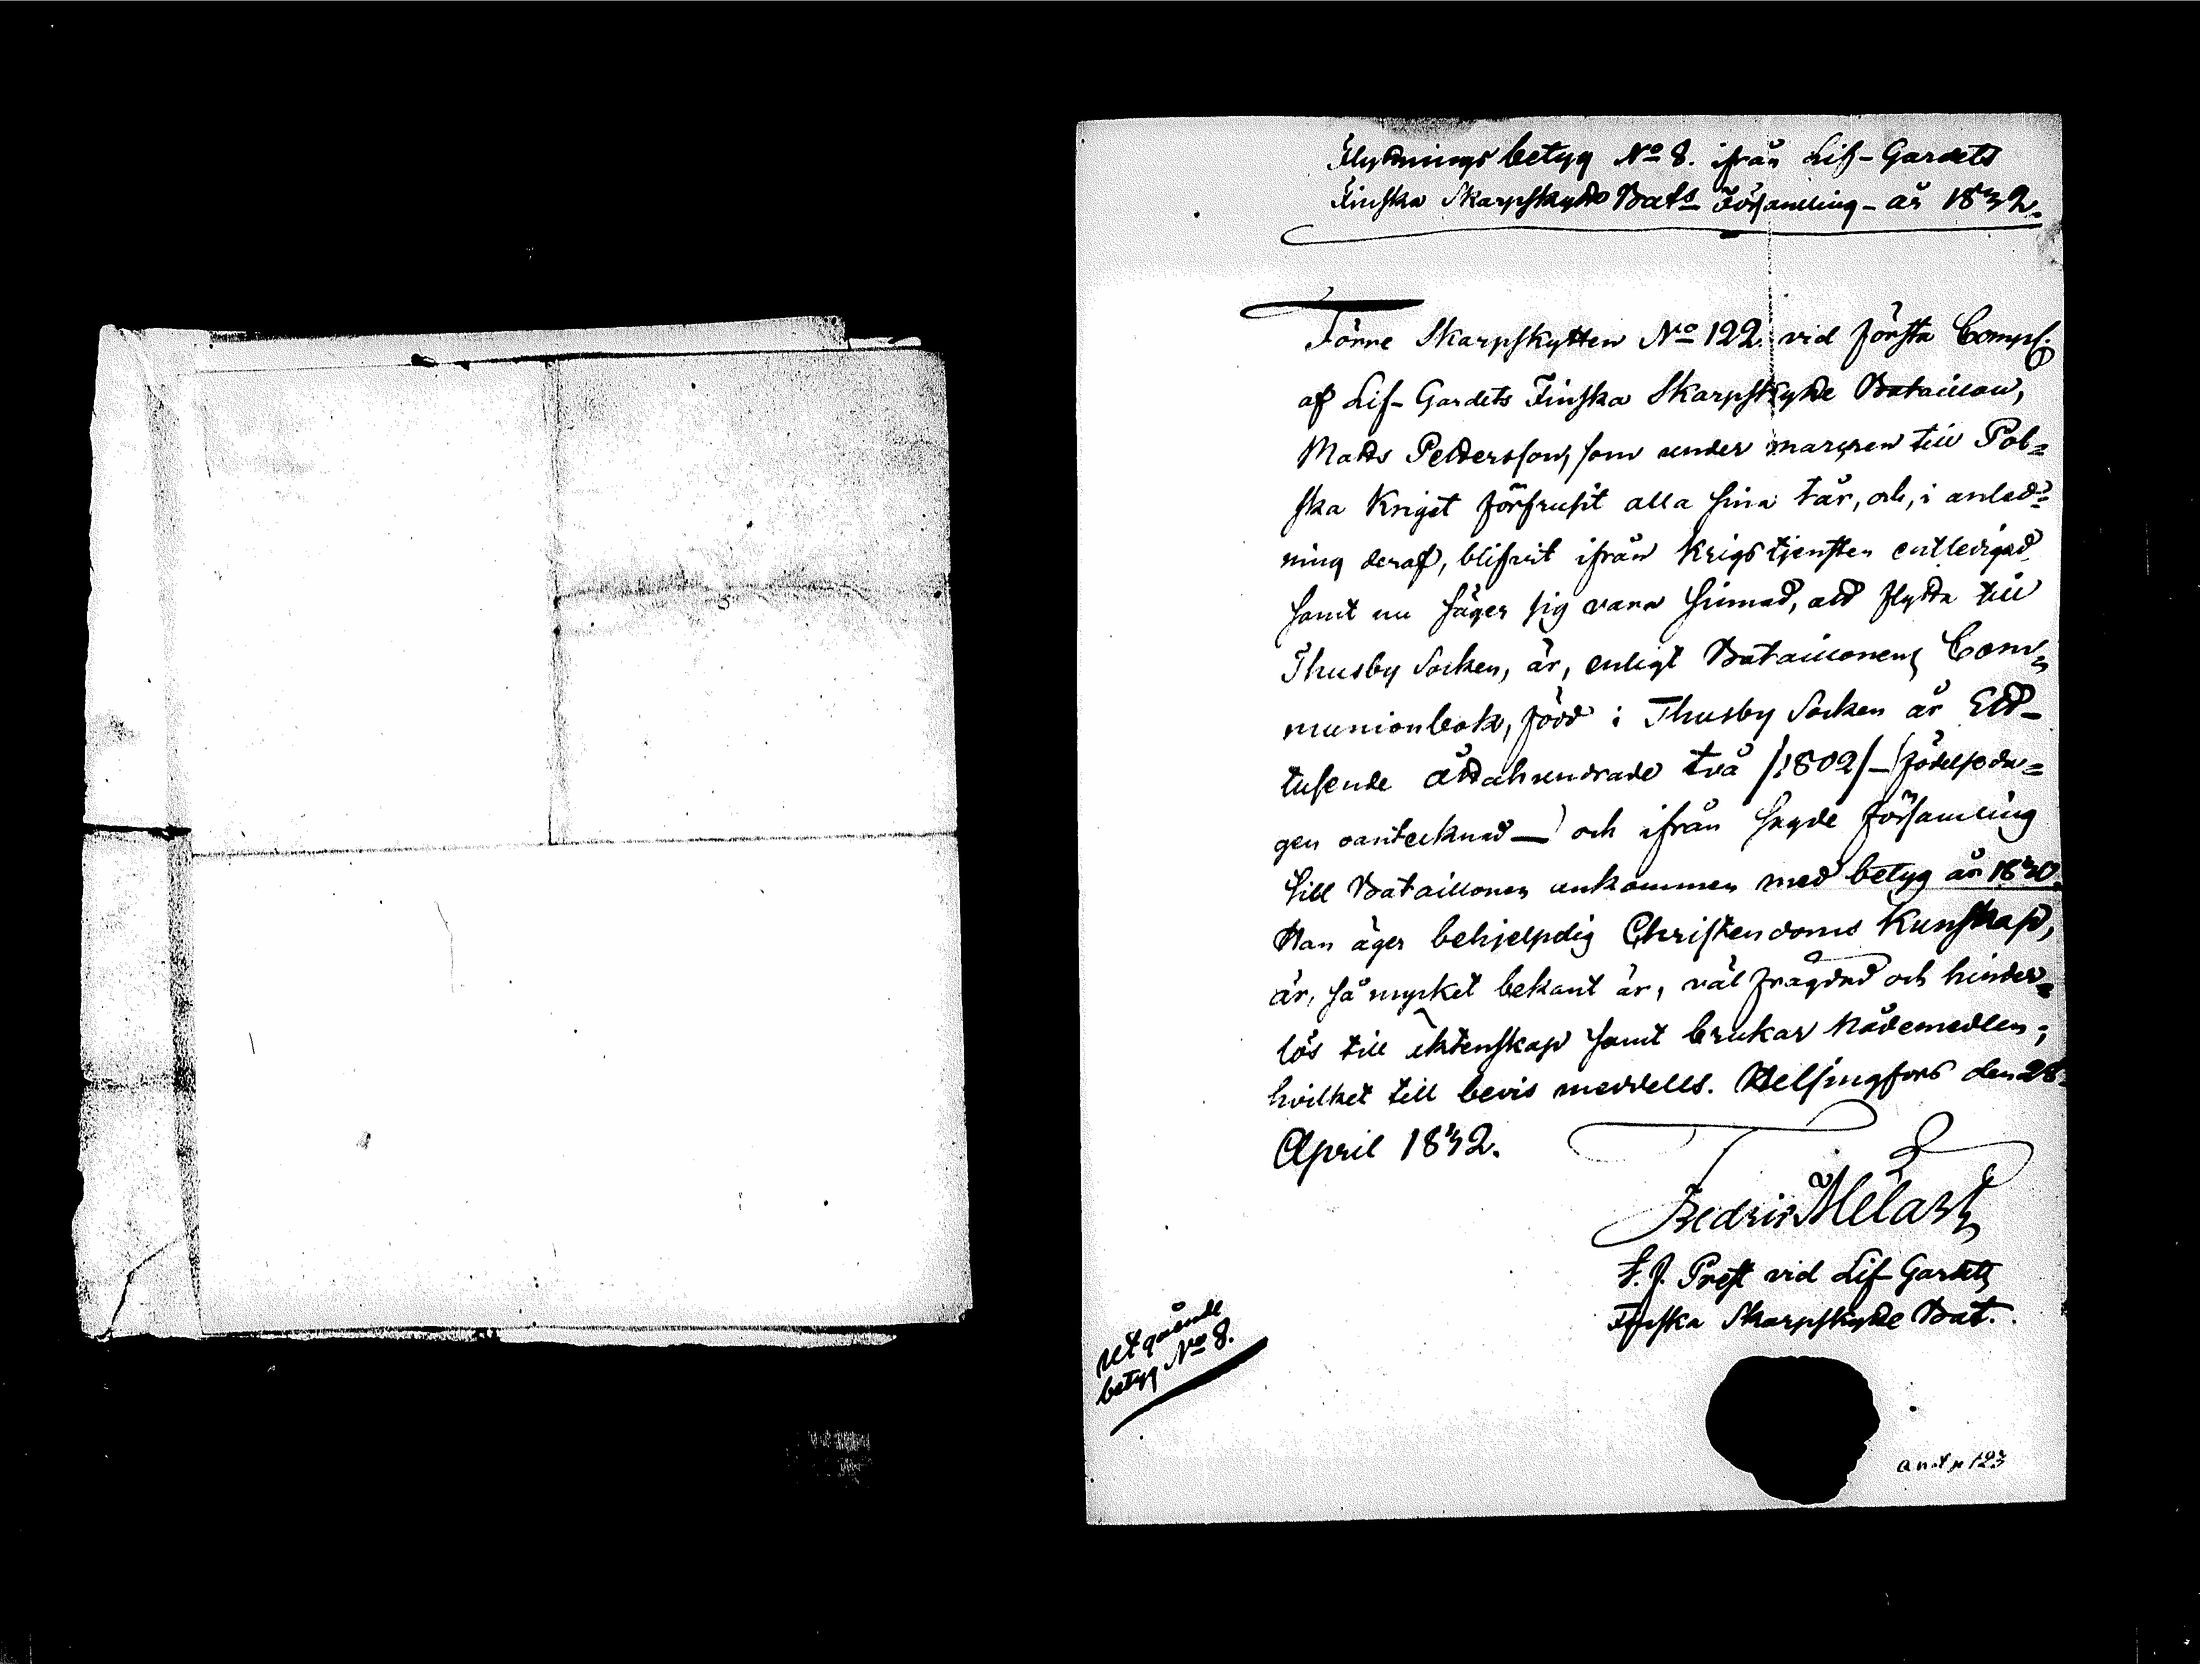 Flyttnings betyg No 8. ifrån Lif-Gardets
Finska Skarpskytte Bats Församling - år 1832.
Förre Skarpskytten No 122. vid första Comp.
af Lif-Gardets Finska Skarpskytte Bataillon,
Matts Pettersson, som under marchen till Pol=
ska Kriget förfrusit alla sina tår, och, i anled=
ning deraf, blifvit ifrån krigstjensten entledigad,
samt nu säger sig vara sinnad, att flytta till
Thusby Socken, är, enligt Bataillonens Com=
munionbok, född i Thusby Socken år Ett-
tusende åttahundrade två /1802/ - (födelseda=
gen oantecknad -) och ifrån sagde Församling
till Bataillonen ankommen med betyg år 1830.
Han äger behjelplig Christendoms kunskap,
är, så mycket bekant är, väl frägdad och hinder=
lös till äktenskap samt brukar Nådemedlen;
hvilket till bevis meddelas. Helsingfors den 28
April 1832.
Fredric Melart
t. f. Prest vid Lif-Gardets
Finska Skarpskytte Bat.
utgående
betyg No 8.
ant p 123